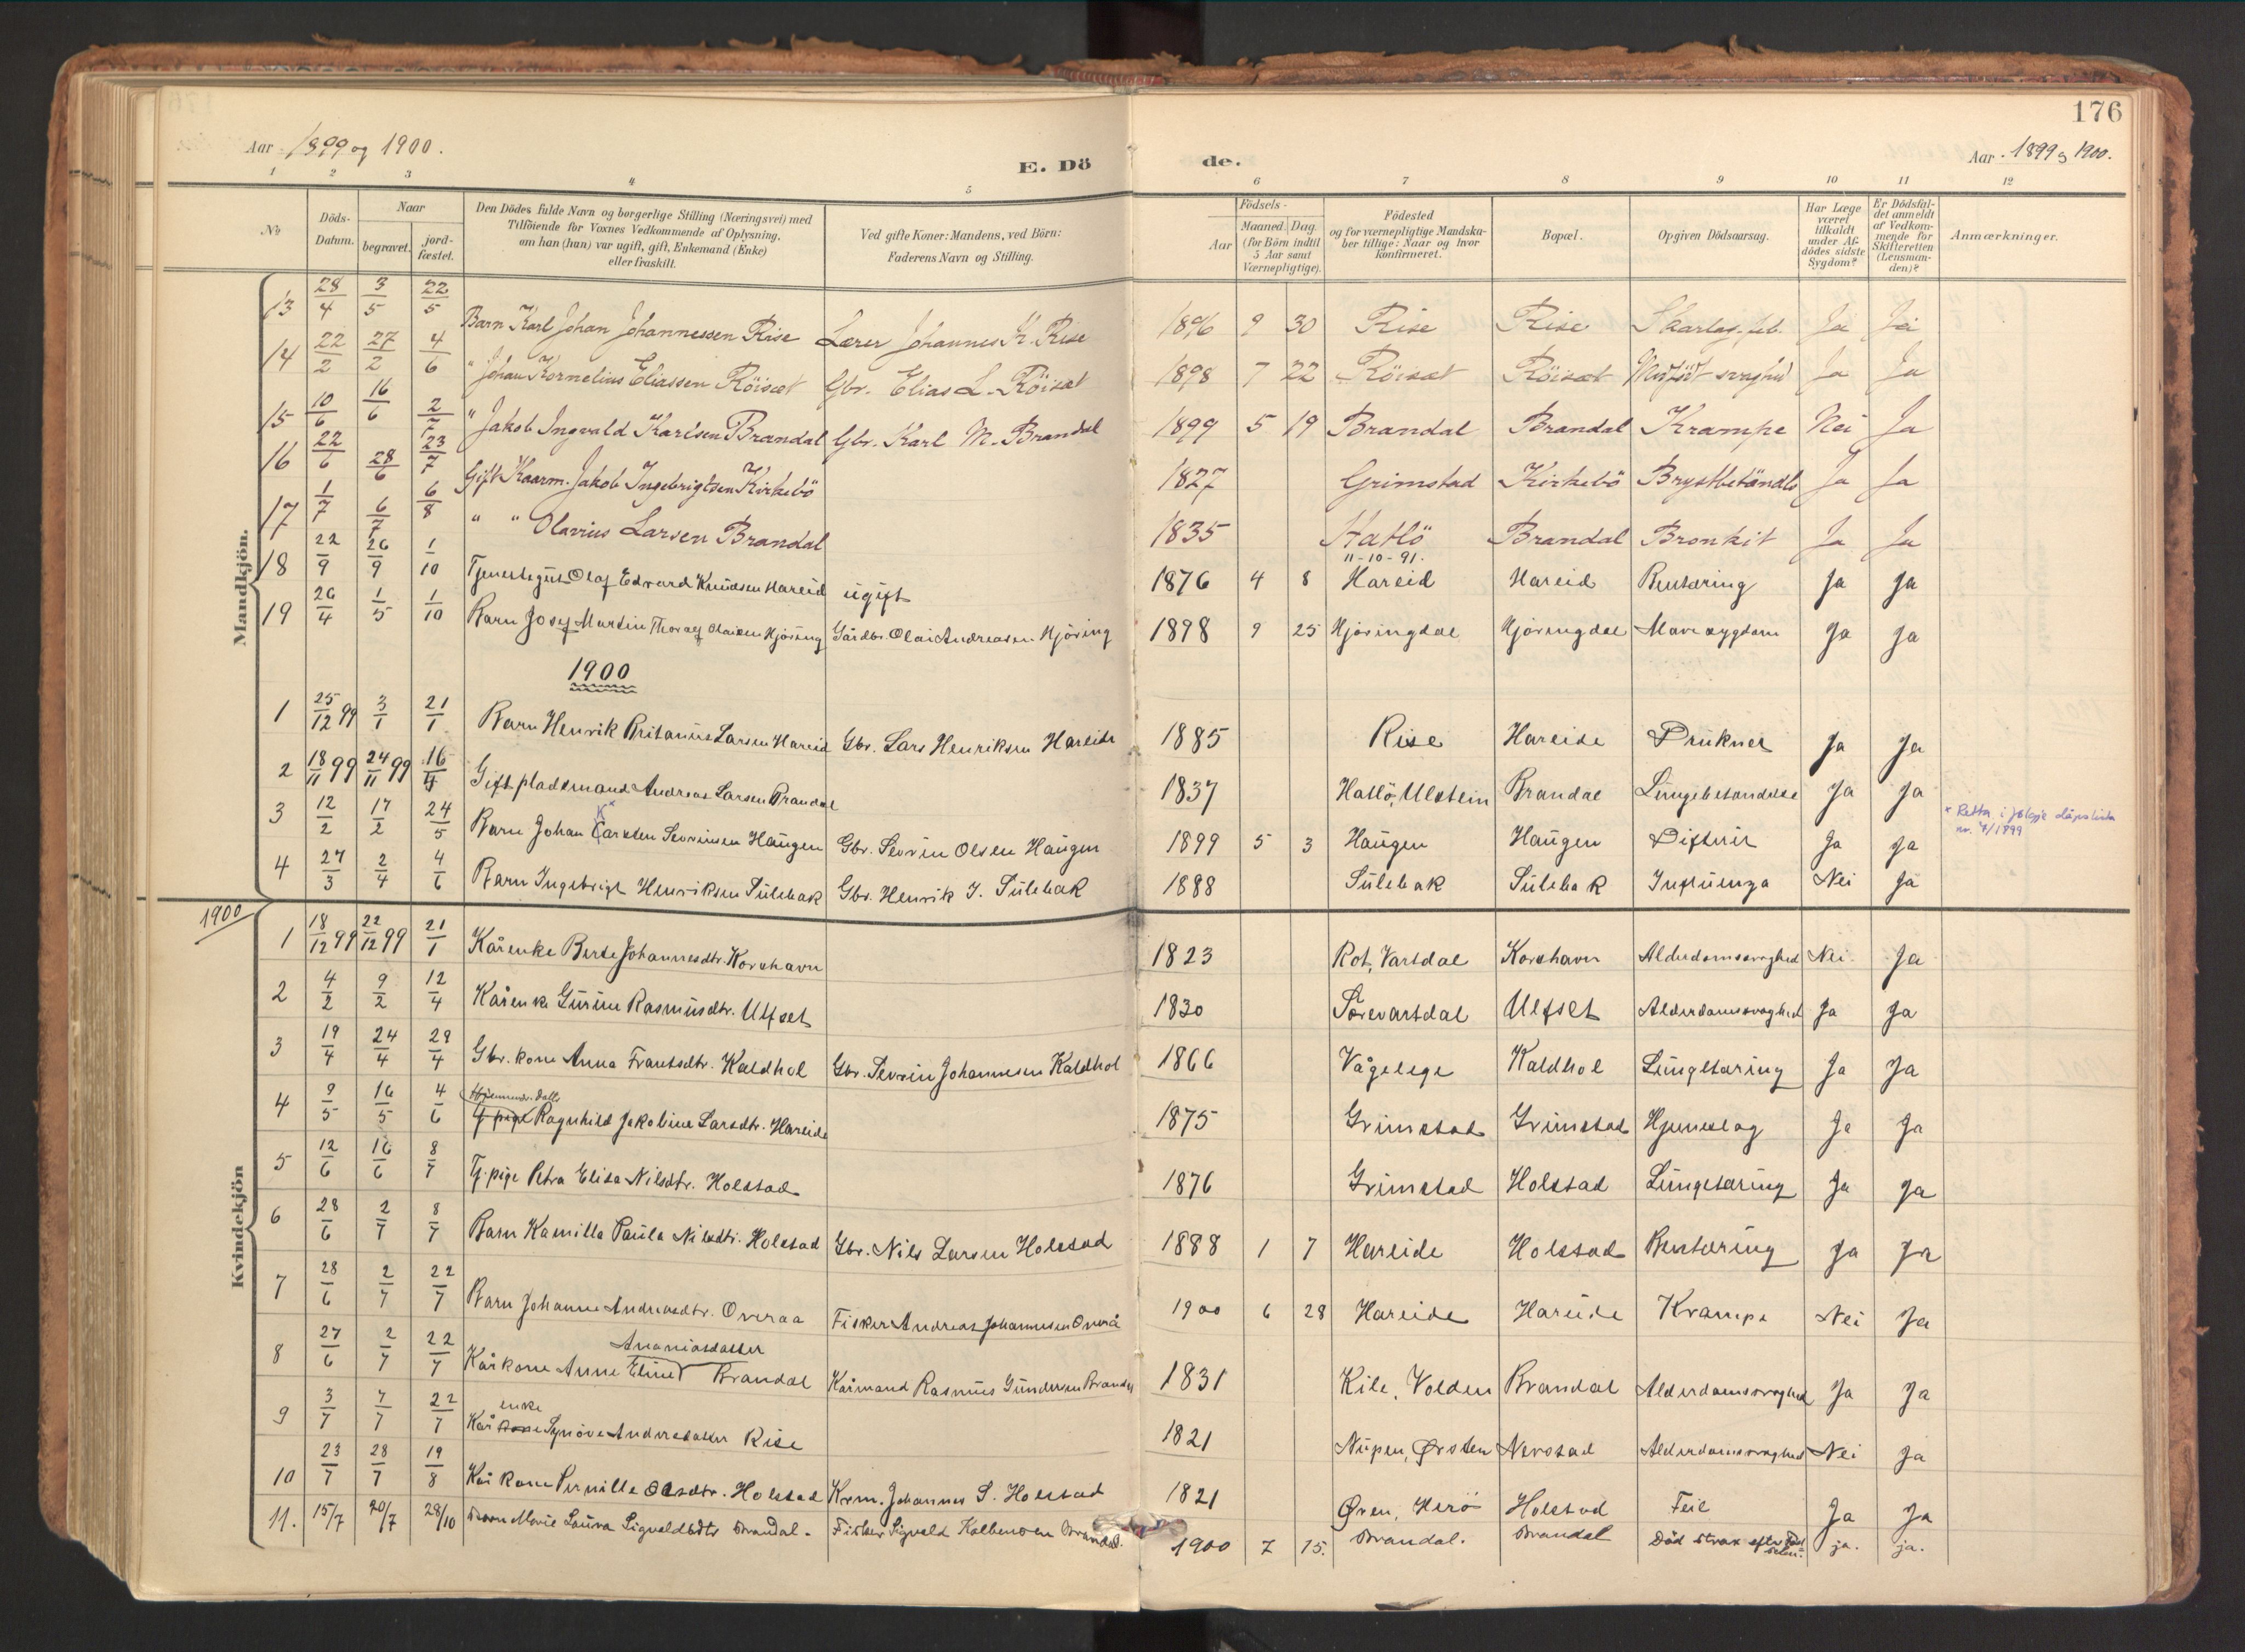 176
Aar 1899 og 1900.
E. Döde.
Aar 1899 og 1900.
1 2 3 4 5 6 7 8 9 10 11 12
No
Döds-Datum.
Naar begravet. jordfæstet.
Den Dödes fulde Navn og borgerlige Stilling (Næringsvei) med Tilföiende for Voxnes Vedkommende af Oplysning, om han (hun) var ugift, gift, Enkemand (Enke) eller fraskilt.
Ved gifte Koner: Mandens, ved Börn: Faderens Navn og Stilling.
Födsels- Aar Maaned. Dag. (for Börn indtil 5 Aar samt Værnepligtige).
Födested og for værnepligtige Mandskaber tillige: Naar og hvor konfirmeret.
Bopæl.
Opgiven Dödsaarsag.
Har Læge været tilkaldt under Afdödes sidste Sygdom?
Er Dödsfaldet anmeldt af Vedkommende for Skifteretten (Lensmanden)?
Anmærkninger.
Mandkjön.
13 28/4 3/5 22/5 Barn Karl Johan Johannessen Rise Lærer Johannes K. Rise 1896 9 30 Rise Rise Skarlag.feb. Ja Ja
14 22/2 27/2 4/6 " Johan Kornelius Eliassen Röisæt Gbr. Elias L. Röisæt 1898 7 22 Röisæt Röisæt Medfödt svaghed Ja Ja
15 10/6 16/6 2/7 " Jakob Ingvald Karlsen Brandal Gbr. Karl M. Brandal 1899 5 19 Brandal Brandal Krampe Nei Ja
16 22/6 28/6 23/7 Gift Kaarm. Jakob Ingebrigtsen Kirkebö 1827 Grimstad Kirkebö Brystbetændls Ja Ja
17 1/7 6/7 6/8 " " Olavius Larsen Brandal 1835 Hatlö Brandal Bronkit Ja Ja
11-10-91.
18 22/9 26/9 1/10 Tjenestegut Olaf Edvard Knudsen Hareid ugift 1876 4 8 Hareid Hareid Bentæring Ja Ja
19 26/4 1/5 1/10 Barn Josef Martin Thoralf Olaisen Hjöring Gårdbr. Olai Andreasen Hjöring 1898 9 25 Hjöringdal Hjöringdal Mavesygdom Ja Ja
1900
1 25/12 99 3/1 21/1 Barn Henrik Britanus Larsen Hareid Gbr. Lars Henriksen Hareide 1885 Rise Hareide Druknet Ja Ja
2 18/11 99 24/11 99 16/4 Gift pladsmand Andreas Larsen Brandal 1837 Hatlö, Ulstein Brandal Lungebetændelse Ja Ja
K*
3 12/2 17/2 24/5 Barn Johan Carsten Sevrinsen Haugen Gbr. Sevrin Olsen Haugen 1899 5 3 Haugen Haugen Difterit Ja Ja
* Retta i følgje dåpslista nr. 7/1899
4 27/3 2/4 4/6 Barn Ingebrigt Henriksen Sulebak Gbr. Henrik J. Sulebak 1888 Sulebak Sulebak Influenza Nei Ja
1900
Kvindekjön
1 18/12 99 22/12 99 21/1 Kårenke Berte Johannesdtr. Korshavn 1823 Rot, Vartdal Korshavn Alderdomssvaghed Nei Ja
2 4/2 9/2 12/4 Kårenke Gurine Rasmusdtr. Ulfset 1830 Sörevartdal Ulfset Alderdomssvaghed Ja Ja
3 19/4 24/4 29/4 Gbr. kone Anna Frantsdtr. Kaldhol Gbr. Sevrin Johannesen Kaldhol 1866 Vågelege Kaldhol Lungetæring Ja Ja
Hjemmev. datter
4 9/5 16/5 4/6 Tj. pige Ragnhild Jakobine Larsdtr. Hareide 1875 Grimstad Grimstad Hjerneslag Ja Ja
5 12/6 16/6 8/7 Tj. pige Petra Elisa Nilsdtr. Holstad 1876 Grimstad Holstad Lungetæring Ja Ja
6 28/6 2/7 8/7 Barn Kamilla Paula Nilsdtr. Holstad Gbr. Nils Larsen Holstad 1888 1 7 Hareide Holstad Bentæring Ja Ja
7 28/6 2/7 22/7 Barn Johanne Andreasdtr. Overaa Fisker Andreas Johannesen Overå 1900 6 28 Hareide Hareide Krampe Nei Ja
Ananiasdatter
8 27/6 2/7 22/7 Kårkone Anne Eline Brandal Kårmand Rasmus Gundersen Brandal 1831 Kile, Volden Brandal Alderdomssvaghed Ja Ja
enke
9 3/7 7/7 22/7 Kårkone Synöve Andersdatter Rise 1821 Nupen, Ørsten Nerstad Alderdomssvaghed Nei Ja
10 23/7 28/7 19/8 Kårkone Pernille Olsdtr. Holstad Krm. Johannes S. Holstad 1821 Øren, Herö Holstad Feil Ja Ja
11. 15/7 20/7 28/10 Barn Marie Laura Sigvaldsdtr Brandal. Fisker Sigvald Kolbensen Brandal. 1900 7 15. Brandal. Brandal Död strax efter Födselen. ja. ja.